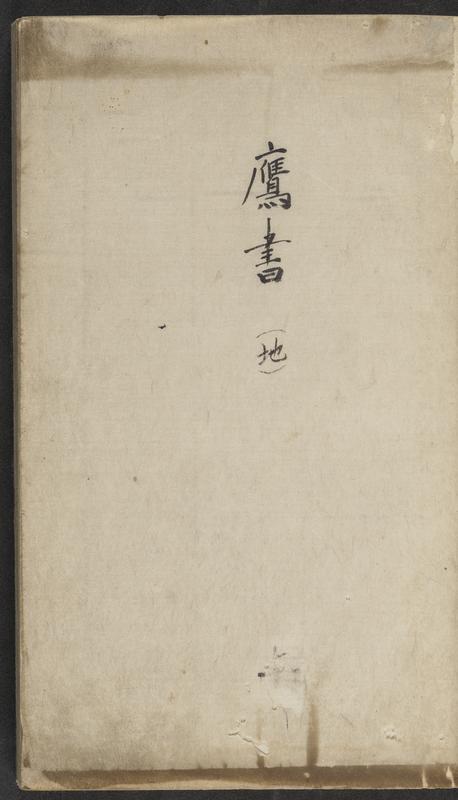 鷹書（地）